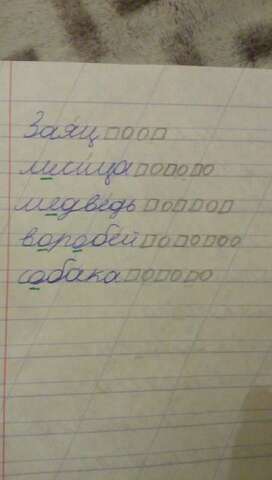 За́яц □○○□
лиси́ца □○□○□○
медве́дь □○□□○□
воробе́й □○□○□○○
соба́ка □○□○□○